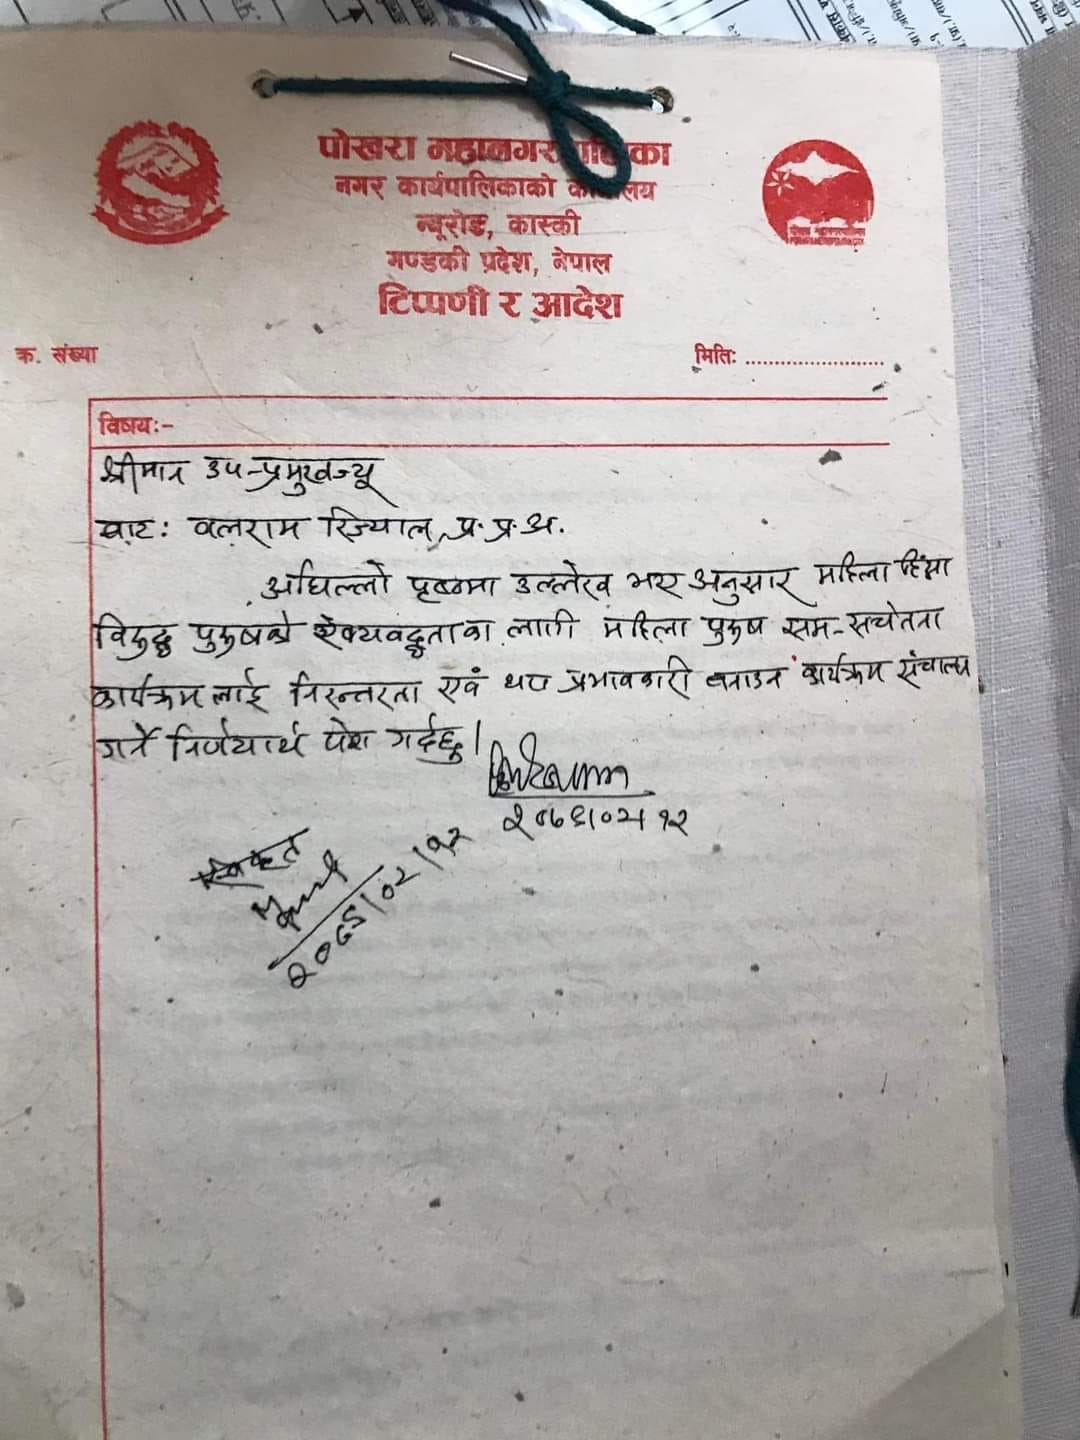 पोखरा महानगरपालिका
नगर कार्यपालिकाको कार्यालय
न्यूरोड, कास्की
गण्डकी प्रदेश, नेपाल
टिप्पणी र आदेश
क्र. संख्या
मितिः ........................
विषयः-
श्रीमान उप-प्रमुखज्यू
बाटः बलराम रिज्याल, प्र.प्र.अ.
अघिल्लो पृष्ठमा उल्लेख भए अनुसार महिला हिंसा
विरुद्ध पुरुषको ऐक्यवद्धताका लागी महिला पुरुष सम-सचेतना
कार्यक्रम लाई निरन्तरता एवं थप प्रभावकारी बनाउन कार्यक्रम संचालन
गर्ने निर्णयार्थ पेश गर्दछु।
२०७६।०२।१२
स्विकृत
२०७६।०२।१२